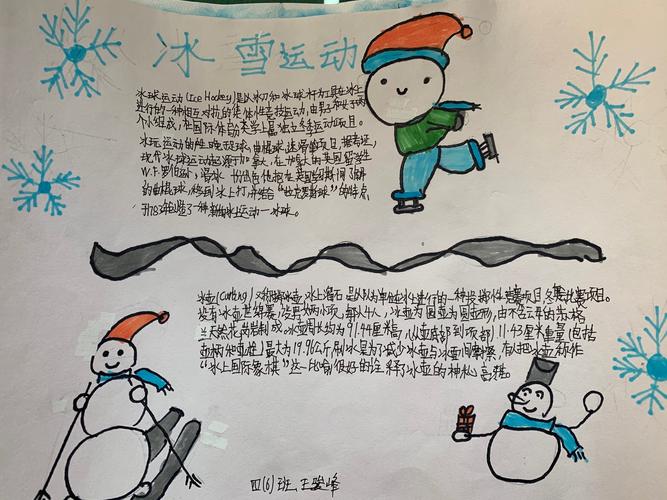 冰雪运动
冰球运动(Ice Hockey)是以冰刀和冰球杆为工具在冰上
进行的一种相互对抗的集体性竞技运动,由男子和女子两
个小组成,在国际体育分类学上属独立冬季运动项目。
冰球运动的
现代冰球运动起源于加拿大,在加拿大的英国留学生
W.F.罗伯逊,
的曲棍球,移到冰上打,并结合“拉克罗斯球”的特点
创造了一种新的冰上运动一冰球。
冰壶(Curling)又称掷冰壶,冰上溜石是以队为单位在冰上进行的一种投掷性竞赛项目,冬奥比赛项目。
设有冰壶世锦赛,设男女两小项,每队4人,冰壶为圆壶为圆壶形,由不含云母的苏格
兰天然花岗岩制成,冰壶周长约为91.44厘米高(从壶底部到顶部)11.43厘米重量(包括
壶柄和壶栓)最大为19.96公斤,刷冰是为了减少冰壶与冰面间摩擦,有人把冰壶称作
“冰上国际象棋”这一比喻很好的诠释了冰壶的神秘,高雅
四(6)班 王